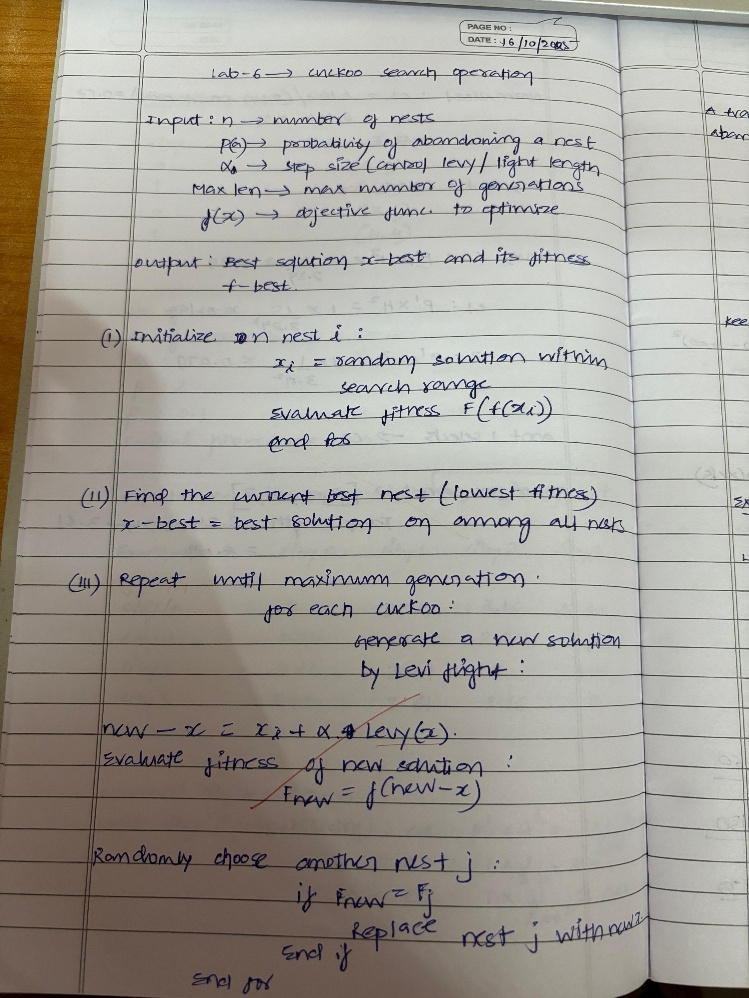 PAGE NO :
DATE : 16/10/2025
Lab-6 → cuckoo search operation
Input : n → number of nests
P(a) → probability of abandoning a nest
α → step size (control levy / light length
Max len → max number of generations
f(x) → objective func. to optimize
Output : Best solution x-best and its fitness
f-best.
(i) Initialize n nest i :
xi = random solution within
search range
Evaluate fitness F(f(xi))
end for
(ii) Find the current best nest (lowest fitness)
x-best = best solution on among all nests
(iii) Repeat until maximum generation.
for each cuckoo :
Generate a new solution
by Levi flight :
new-x = xi + α. Levy(x).
Evaluate fitness of new solution :
Fnew = f(new-x)
Randomly choose another nest j :
if Fnew = Fj
Replace nest j with newx
End if
End for
A
aban
kee